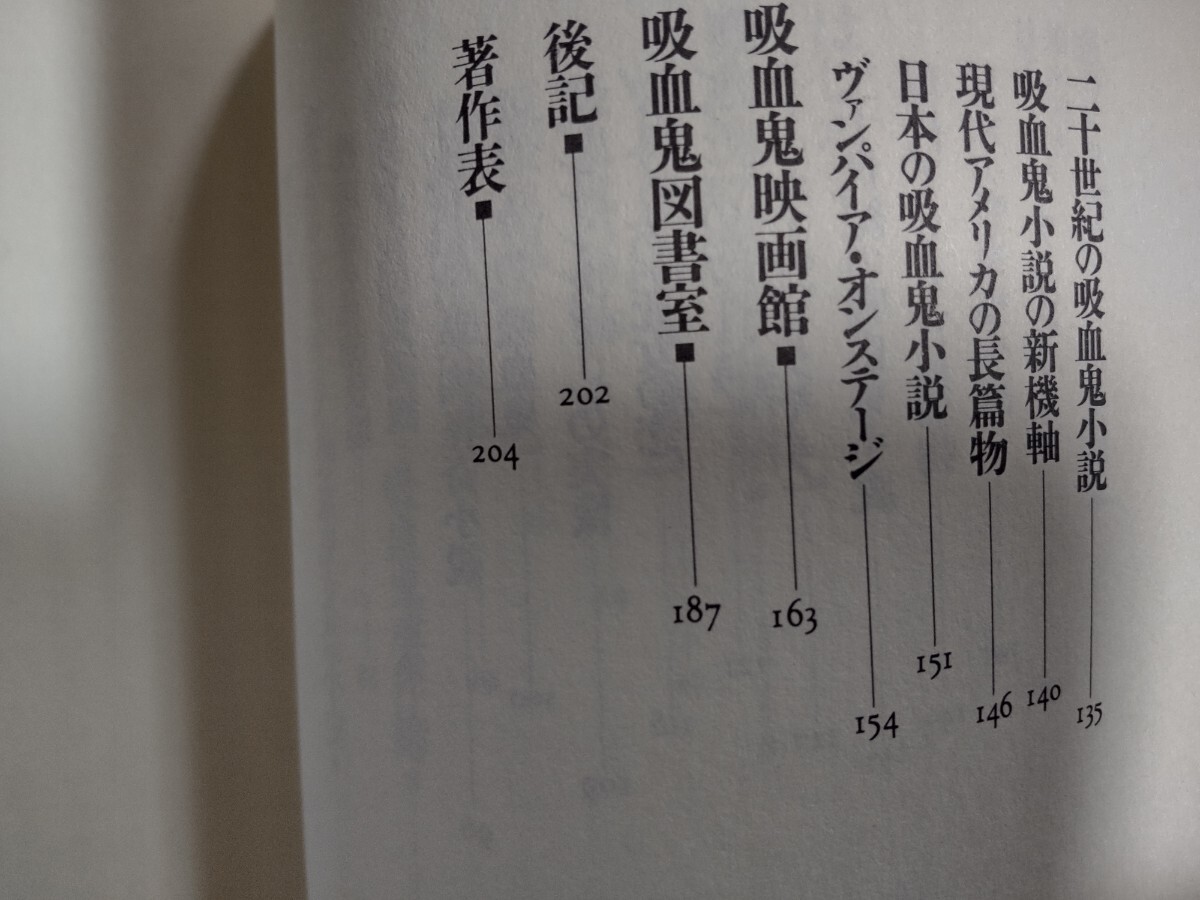 二十世紀の吸血鬼小説 135
吸血鬼小説の新機軸 140
現代アメリカの長篇物 146
日本の吸血鬼小説 151
ヴァンパイア・オンステージ 154
吸血鬼映画館■ 163
吸血鬼図書室■ 187
後記■ 202
著作表■ 204